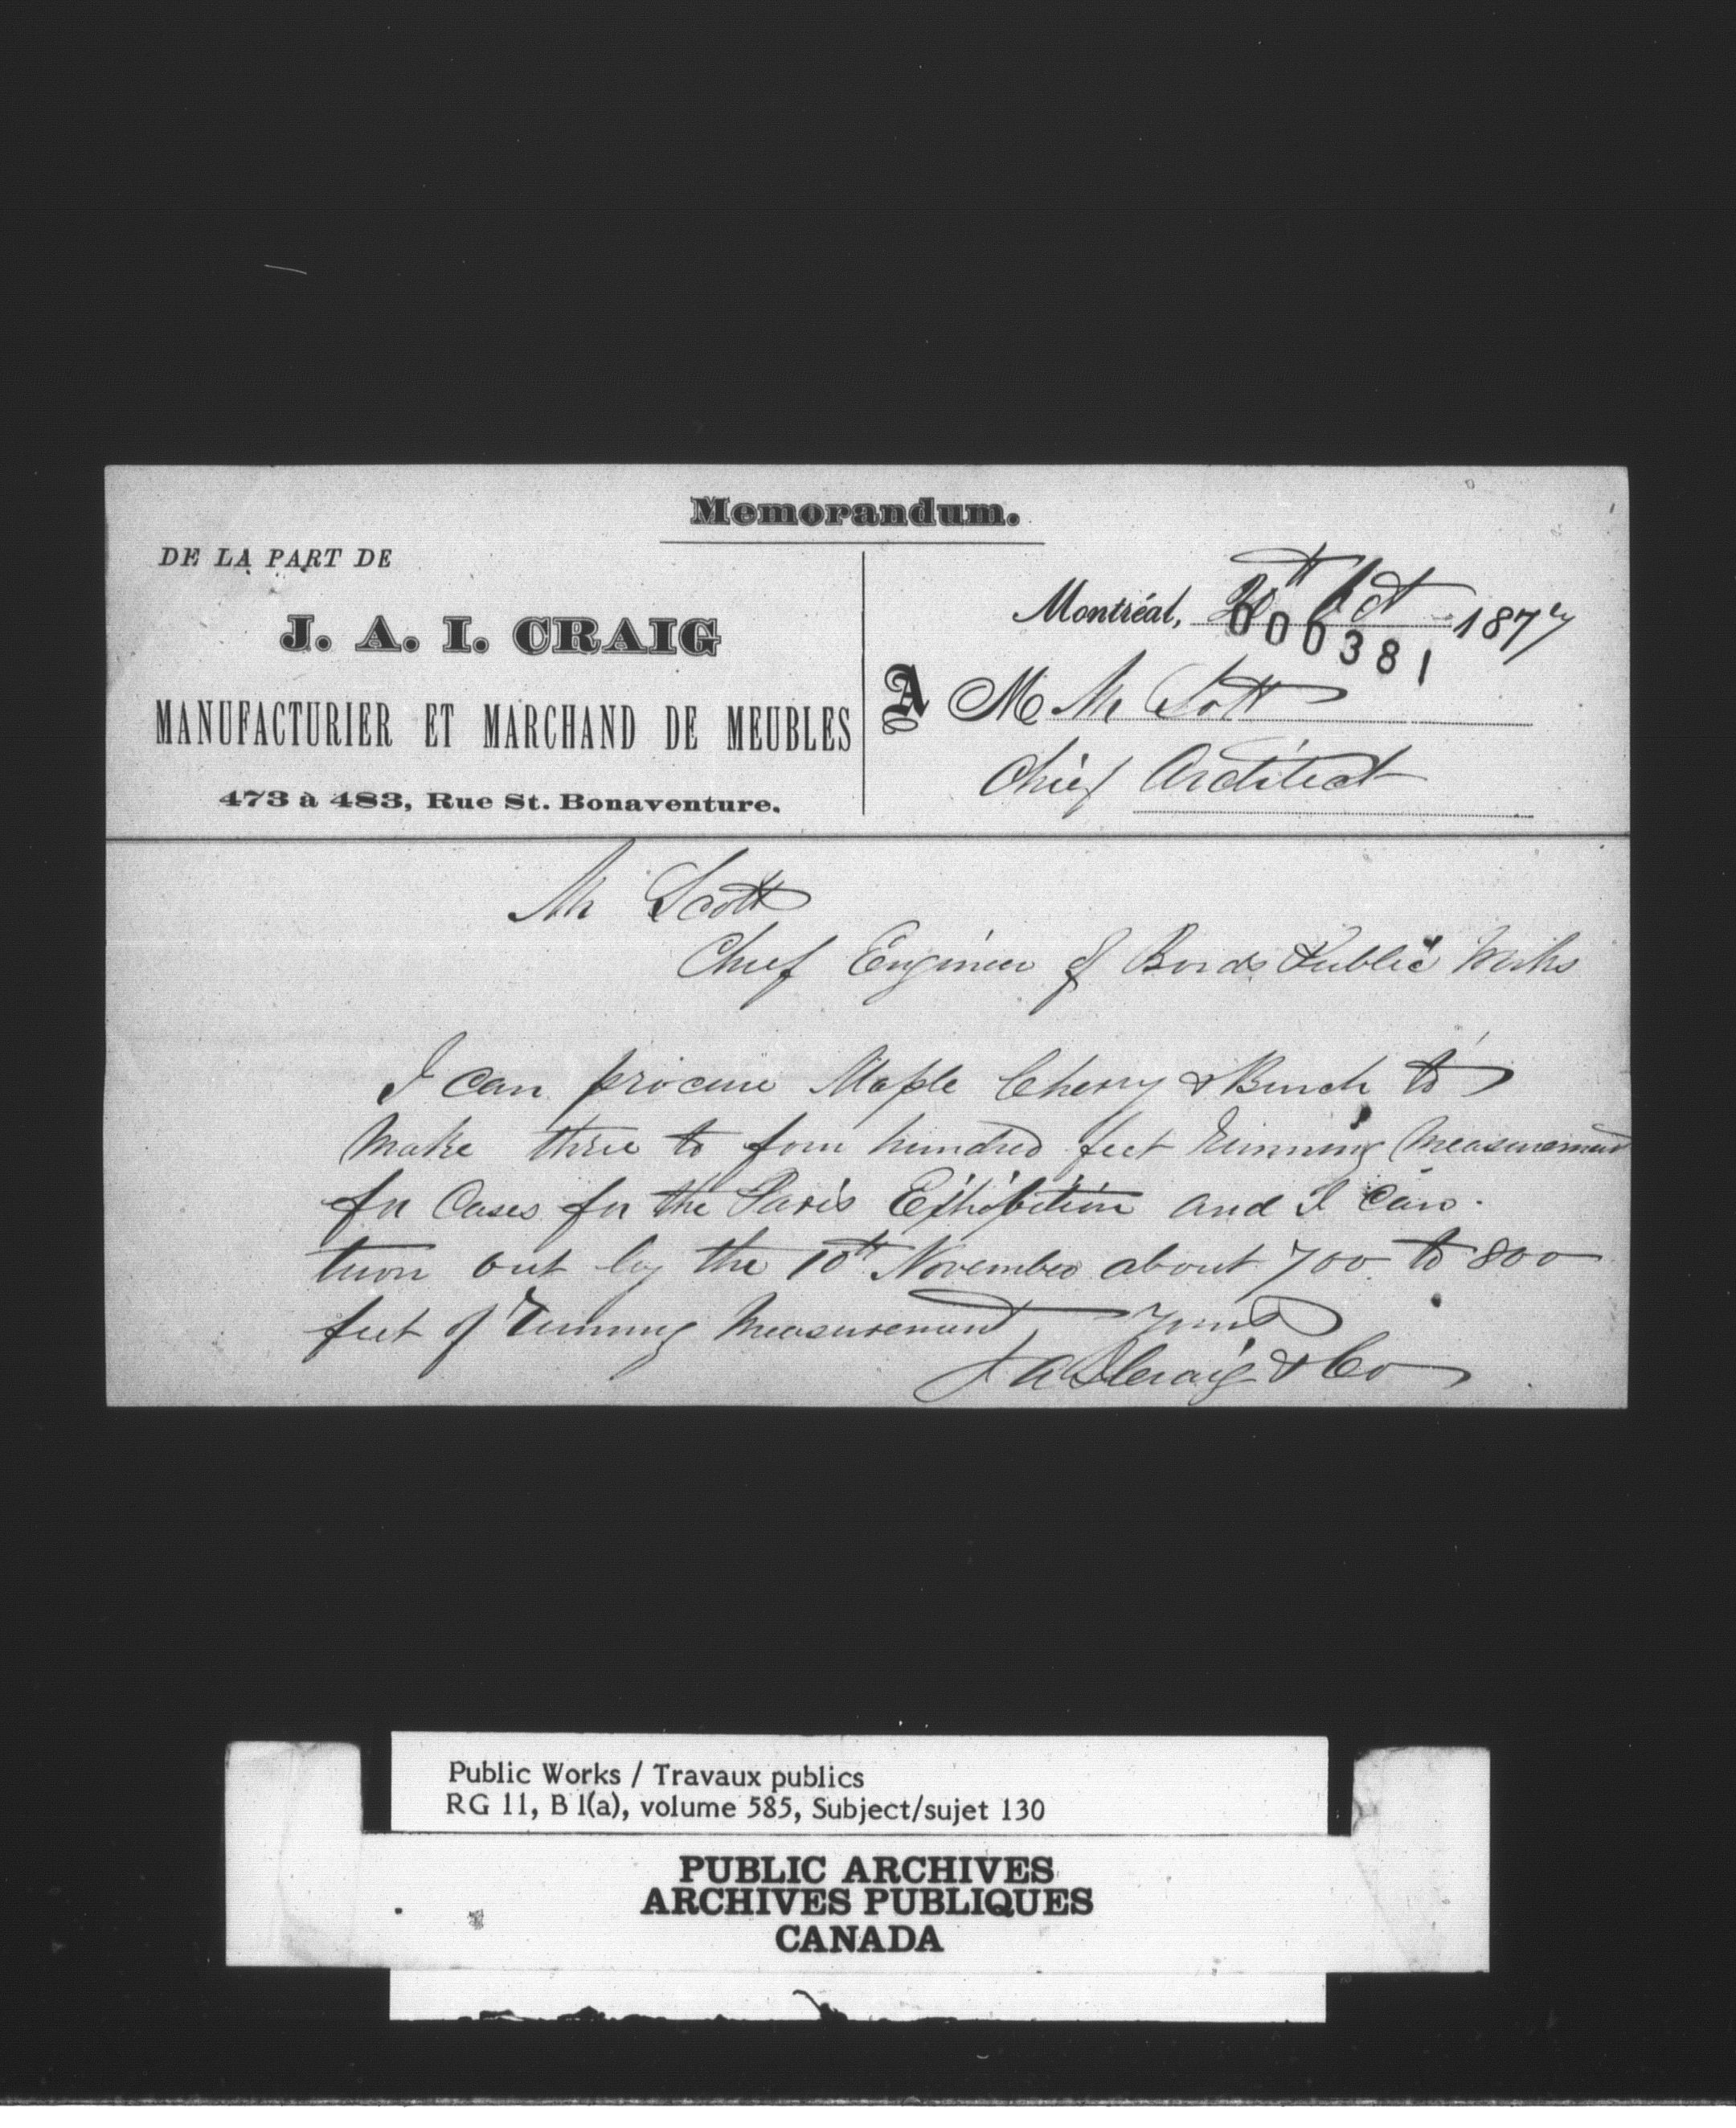 Memorandum.
DE LA PART DE
J. A. I. CRAIG
MANUFACTURIER ET MARCHAND DE MEUBLES
473 à 483, Rue St. Bonaventure.
Montréal, Oct 1877
000381
A M Mr Scott
Chief Architect
Mr Scott
Chief Engineer of Public Works
I can procure Maple Cherry & Burch to
make three to four hundred feet running measurement
for Cases for the Paris Exhibition and I can
turn out by the 10th November about 700 to 800
feet of running measurement Yours
J A I Craig & Co
Public Works / Travaux publics
RG 11, B 1(a), volume 585, Subject/sujet 130
PUBLIC ARCHIVES
ARCHIVES PUBLIQUES
CANADA